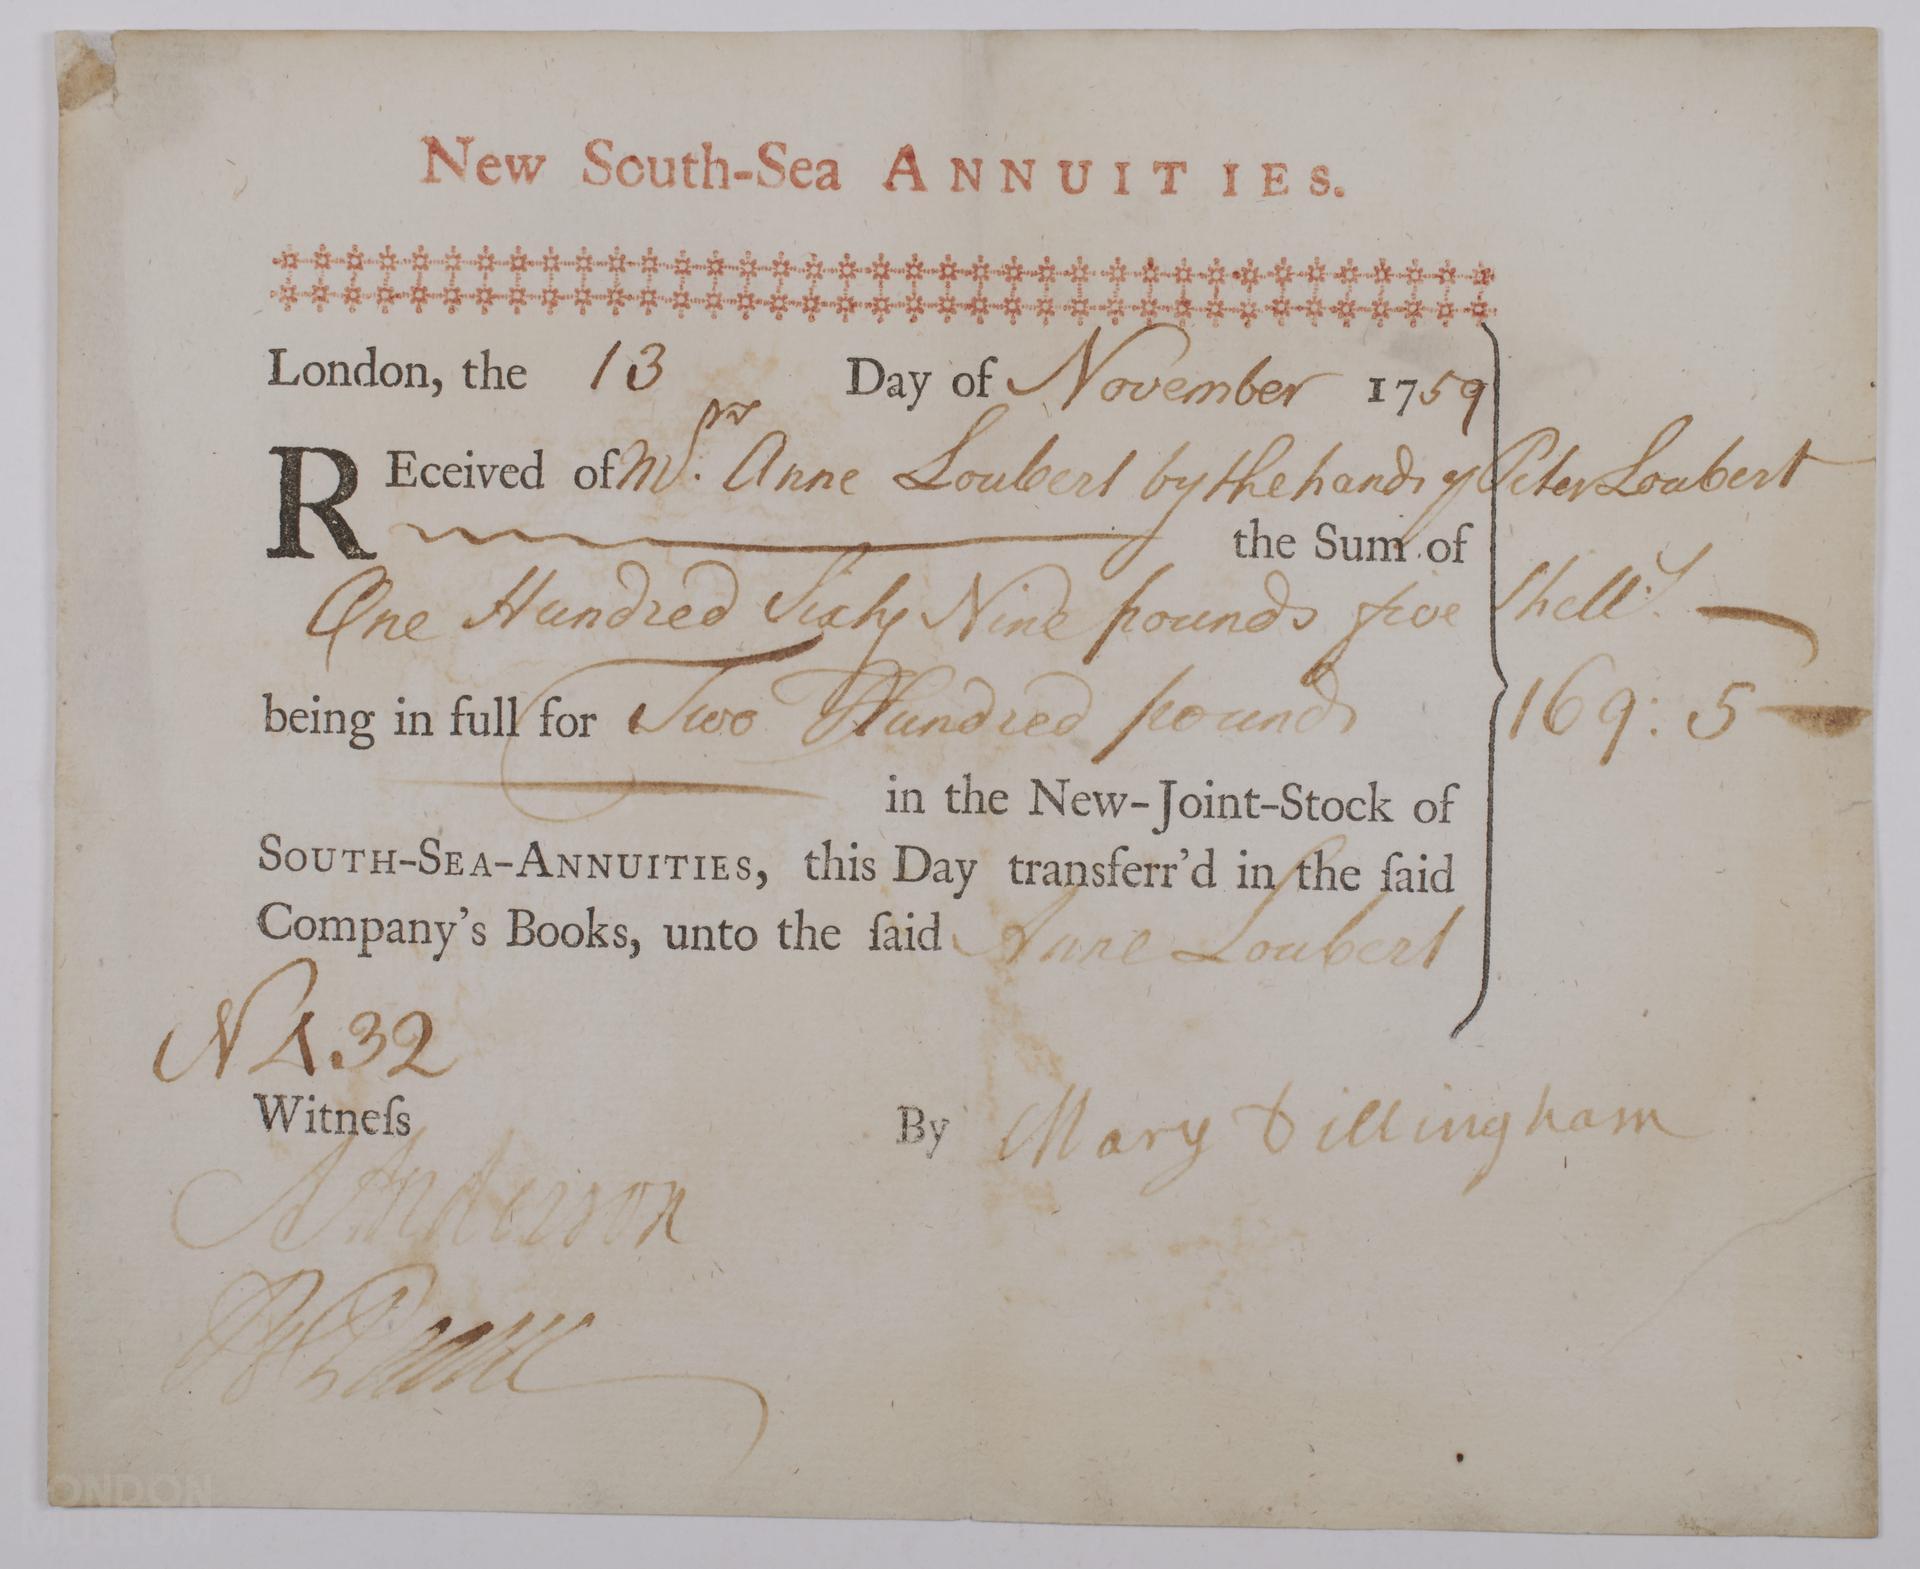 New South-Sea ANNUITIES.
London, the 13 Day of November 1759
REceived of Mrs. Anne Loubert by the hands of Peter Loubert
the Sum of
One Hundred Sixty Nine pounds five Shill.s
being in full for Two Hundred pounds 169: 5
in the New-Joint-Stock of
SOUTH-SEA-ANNUITIES, this Day transferr'd in the ſaid
Company's Books, unto the ſaid Anne Loubert
32
Witneſs By Mary Dillingham
Anderson
LONDON
MUSEUM